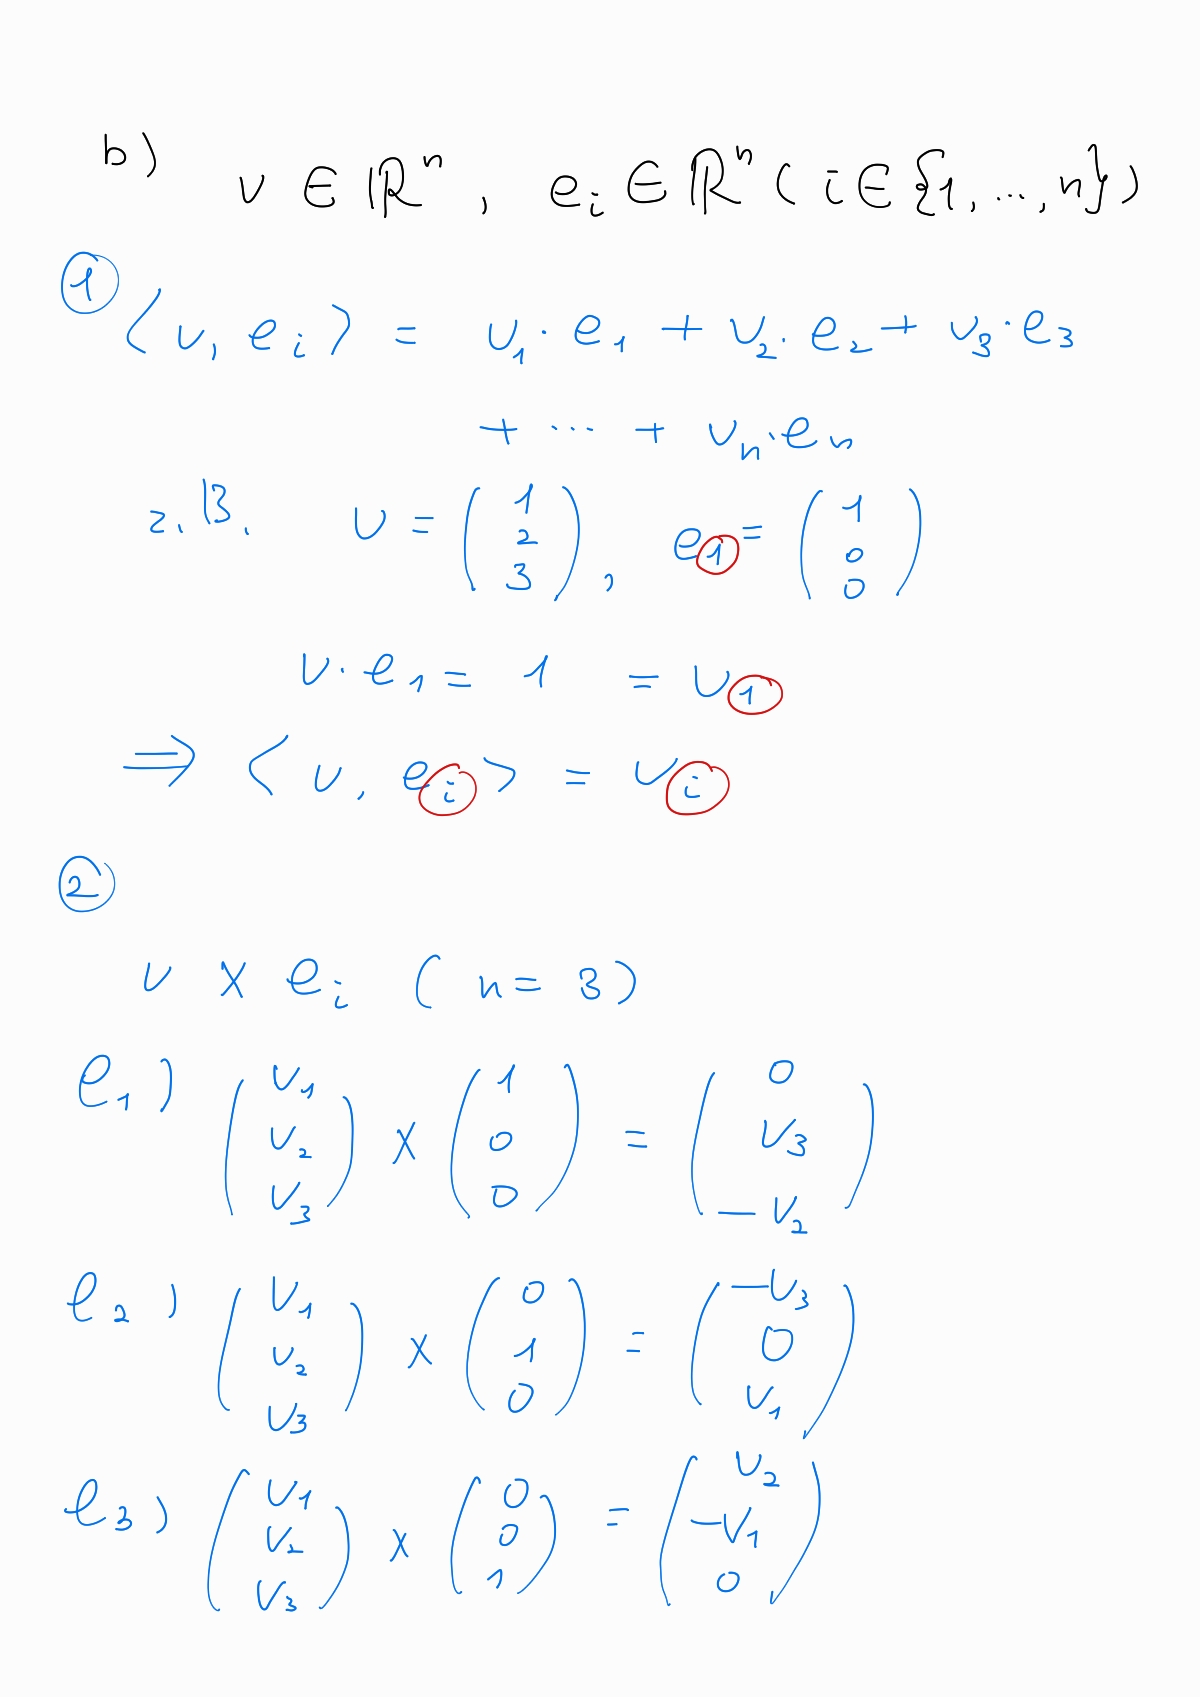 b) v ∈ ℝⁿ, eᵢ ∈ ℝⁿ (i ∈ {1, ..., n})
①
⟨v, eᵢ⟩ = v₁ · e₁ + v₂ · e₂ + v₃ · e₃
+ ... + vₙ · eₙ
z.B. v = (1 2 3), e₁ = (1 0 0)
v · e₁ = 1 = v₁
⇒ ⟨v, eᵢ⟩ = vᵢ
②
v × eᵢ (n = 3)
e₁) (v₁ v₂ v₃) × (1 0 0) = (0 v₃ -v₂)
e₂) (v₁ v₂ v₃) × (0 1 0) = (-v₃ 0 v₁)
e₃) (v₁ v₂ v₃) × (0 0 1) = (v₂ -v₁ 0)